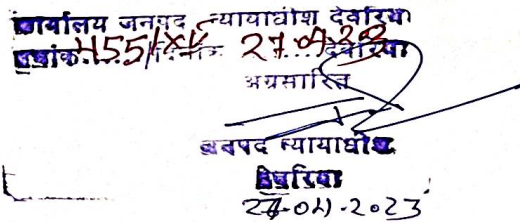 कार्यालय जनपद न्यायाधीश देवरिया
पत्रांक 455/XV दिनांक 27.04.23 देवरिया
अग्रसारित
जनपद न्यायाधीश
देवरिया
27-04-2023